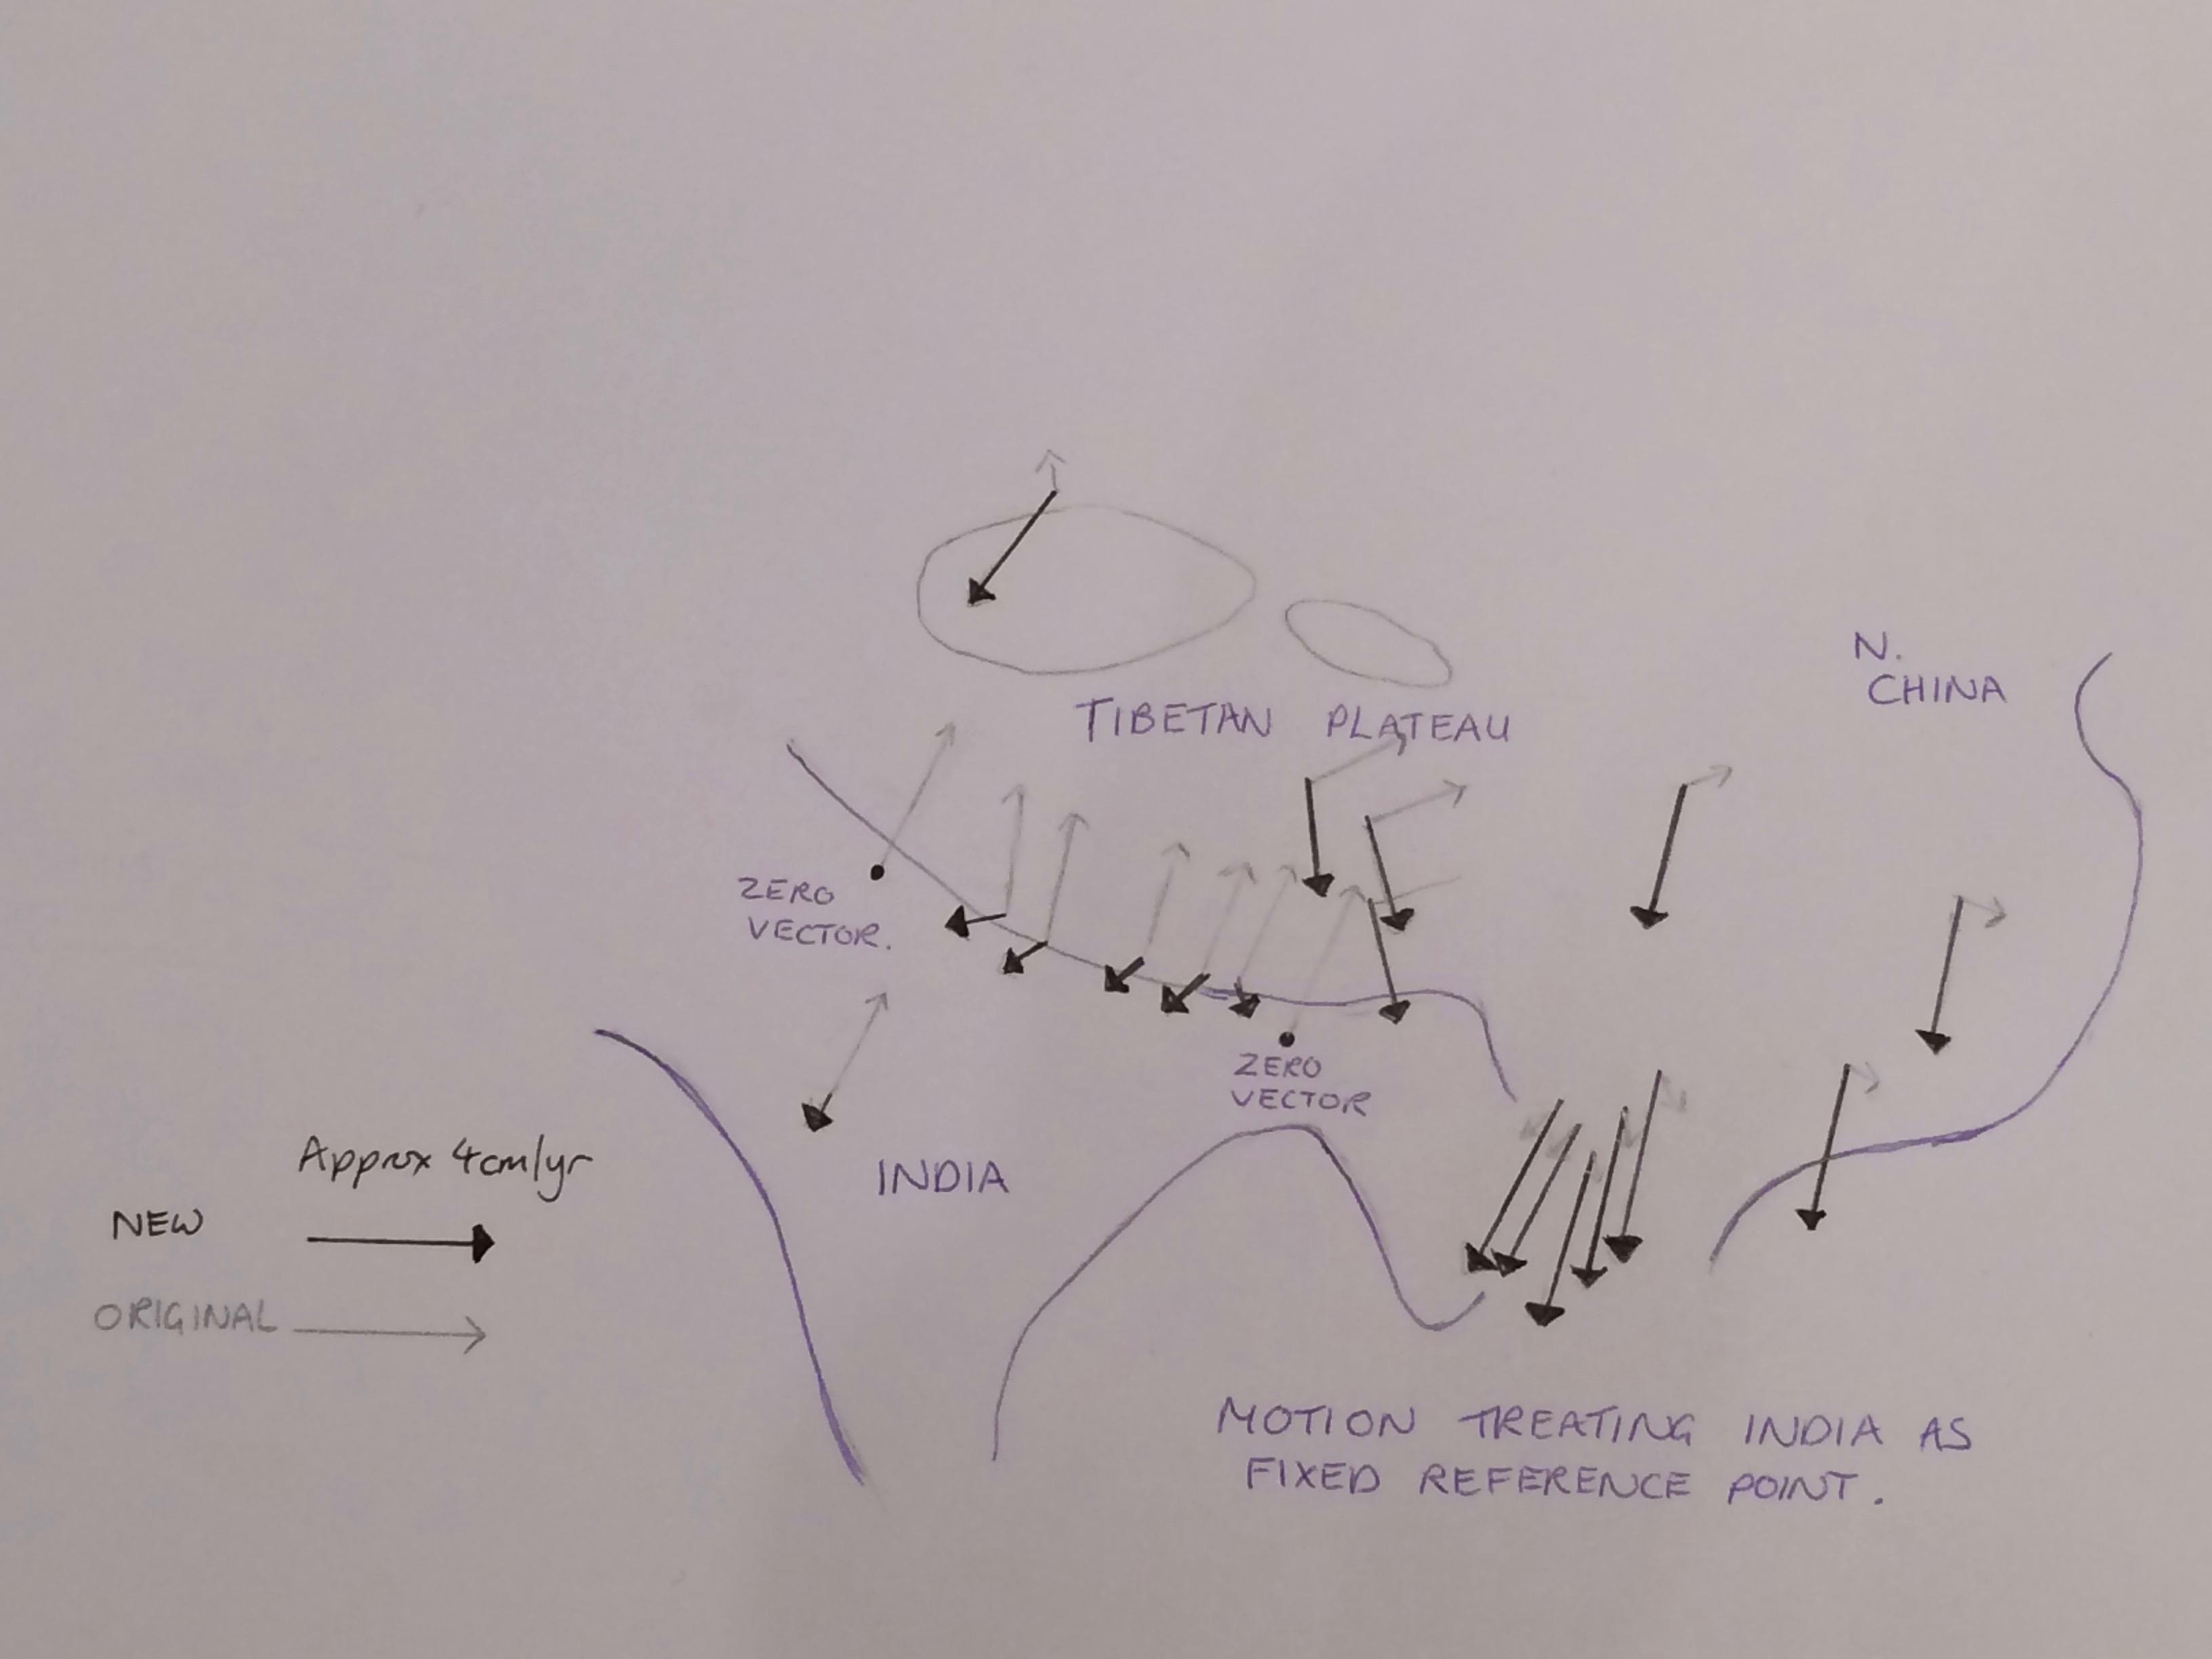 N.
CHINA
TIBETAN PLATEAU
ZERO
VECTOR.
ZERO
VECTOR
INDIA
Approx 4cm/yr
NEW
ORIGINAL
MOTION TREATING INDIA AS
FIXED REFERENCE POINT.